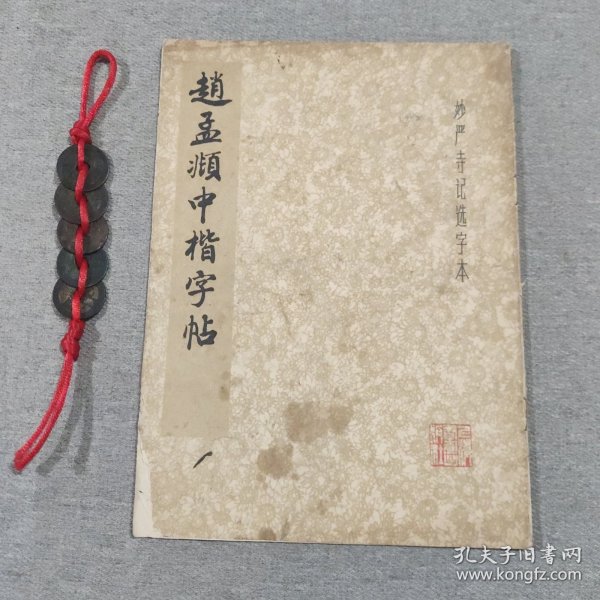 趙孟頫中楷字帖
妙严寺记选字本
孔夫子旧书网
www.kongfz.com